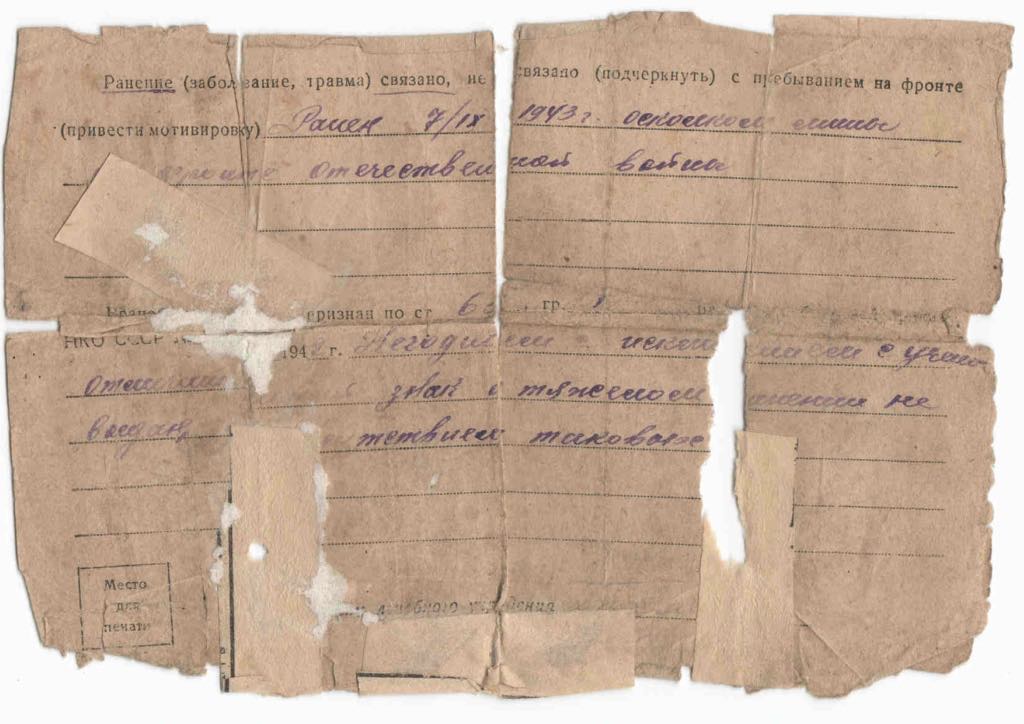 Ранение (заболевание, травма) связано, не связано (подчеркнуть) с пребыванием на фронте
(привести мотивировку) Ранен 7/IX 1943 г. осколком мины
фронте отечественной войны
признан по ст. 6 гр. 1
НКО СССР 194 г. Негодным с исключением с учета
знак о тяжелом ранении не
выдан таковых
Место
для
печати
лечебного учреждения